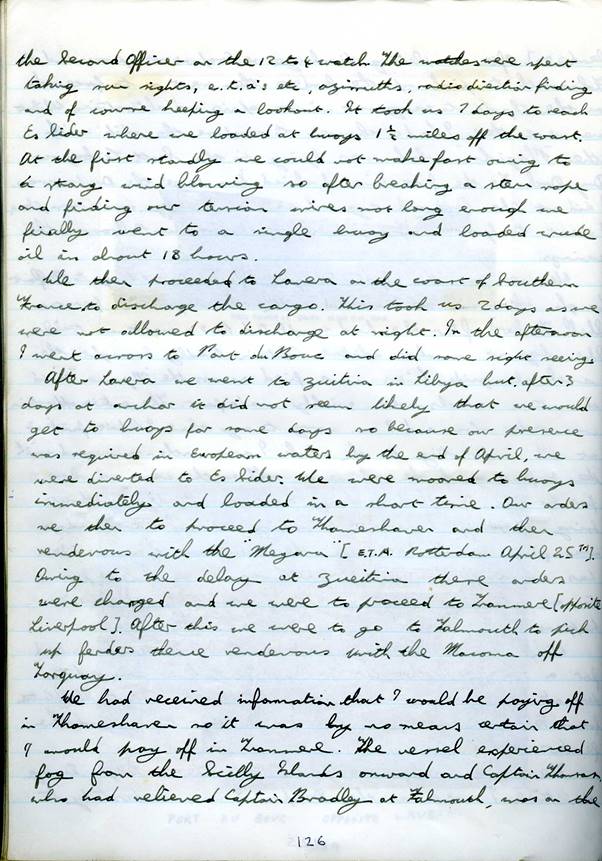 the Second Officer on the 12 to 4 watch. The watches were spent
taking sun sights, e.t.a's etc, azimuths, radio direction finding
and of course keeping a lookout. It took us 7 days to reach
Es Sider where we loaded at buoys 1½ miles off the coast.
At the first standby we could not make fast owing to
a strong wind blowing so after breaking a stern rope
and finding our tension wires not long enough we
finally went to a single buoy and loaded crude
oil in about 18 hours.
We then proceeded to Lavera on the coast of Southern
France to discharge the cargo. This took us 2 days as we
were not allowed to discharge at night. In the afternoon
I went across to Port du Bouc and did some sight seeing
After Lavera we went to Zueitina in Libya but, after 3
days at anchor it did not seem likely that we would
get to buoys for some days so because our presence
was required in European waters by the end of April, we
were diverted to Es Sider. We were moored to buoys
immediately and loaded in a short time. Our orders
we then to proceed to Thameshaven and then
rendevous with the "Megara" [E.T.A. Rotterdam April 25TH].
Owing to the delay at Zueitina these orders
were changed and we were to proceed to Tranmere [opposite
Liverpool]. After this we were to go to Falmouth to pick
up fenders thence rendevous with the Macoma off
Torquay.
We had received information that I would be paying off
in Thameshaven so it was by no means certain that
I would pay off in Tranmere. The vessel experienced
fog from the Scilly Islands onward and Captain
who had relieved Captain Bradly at Falmouth, was on the
126